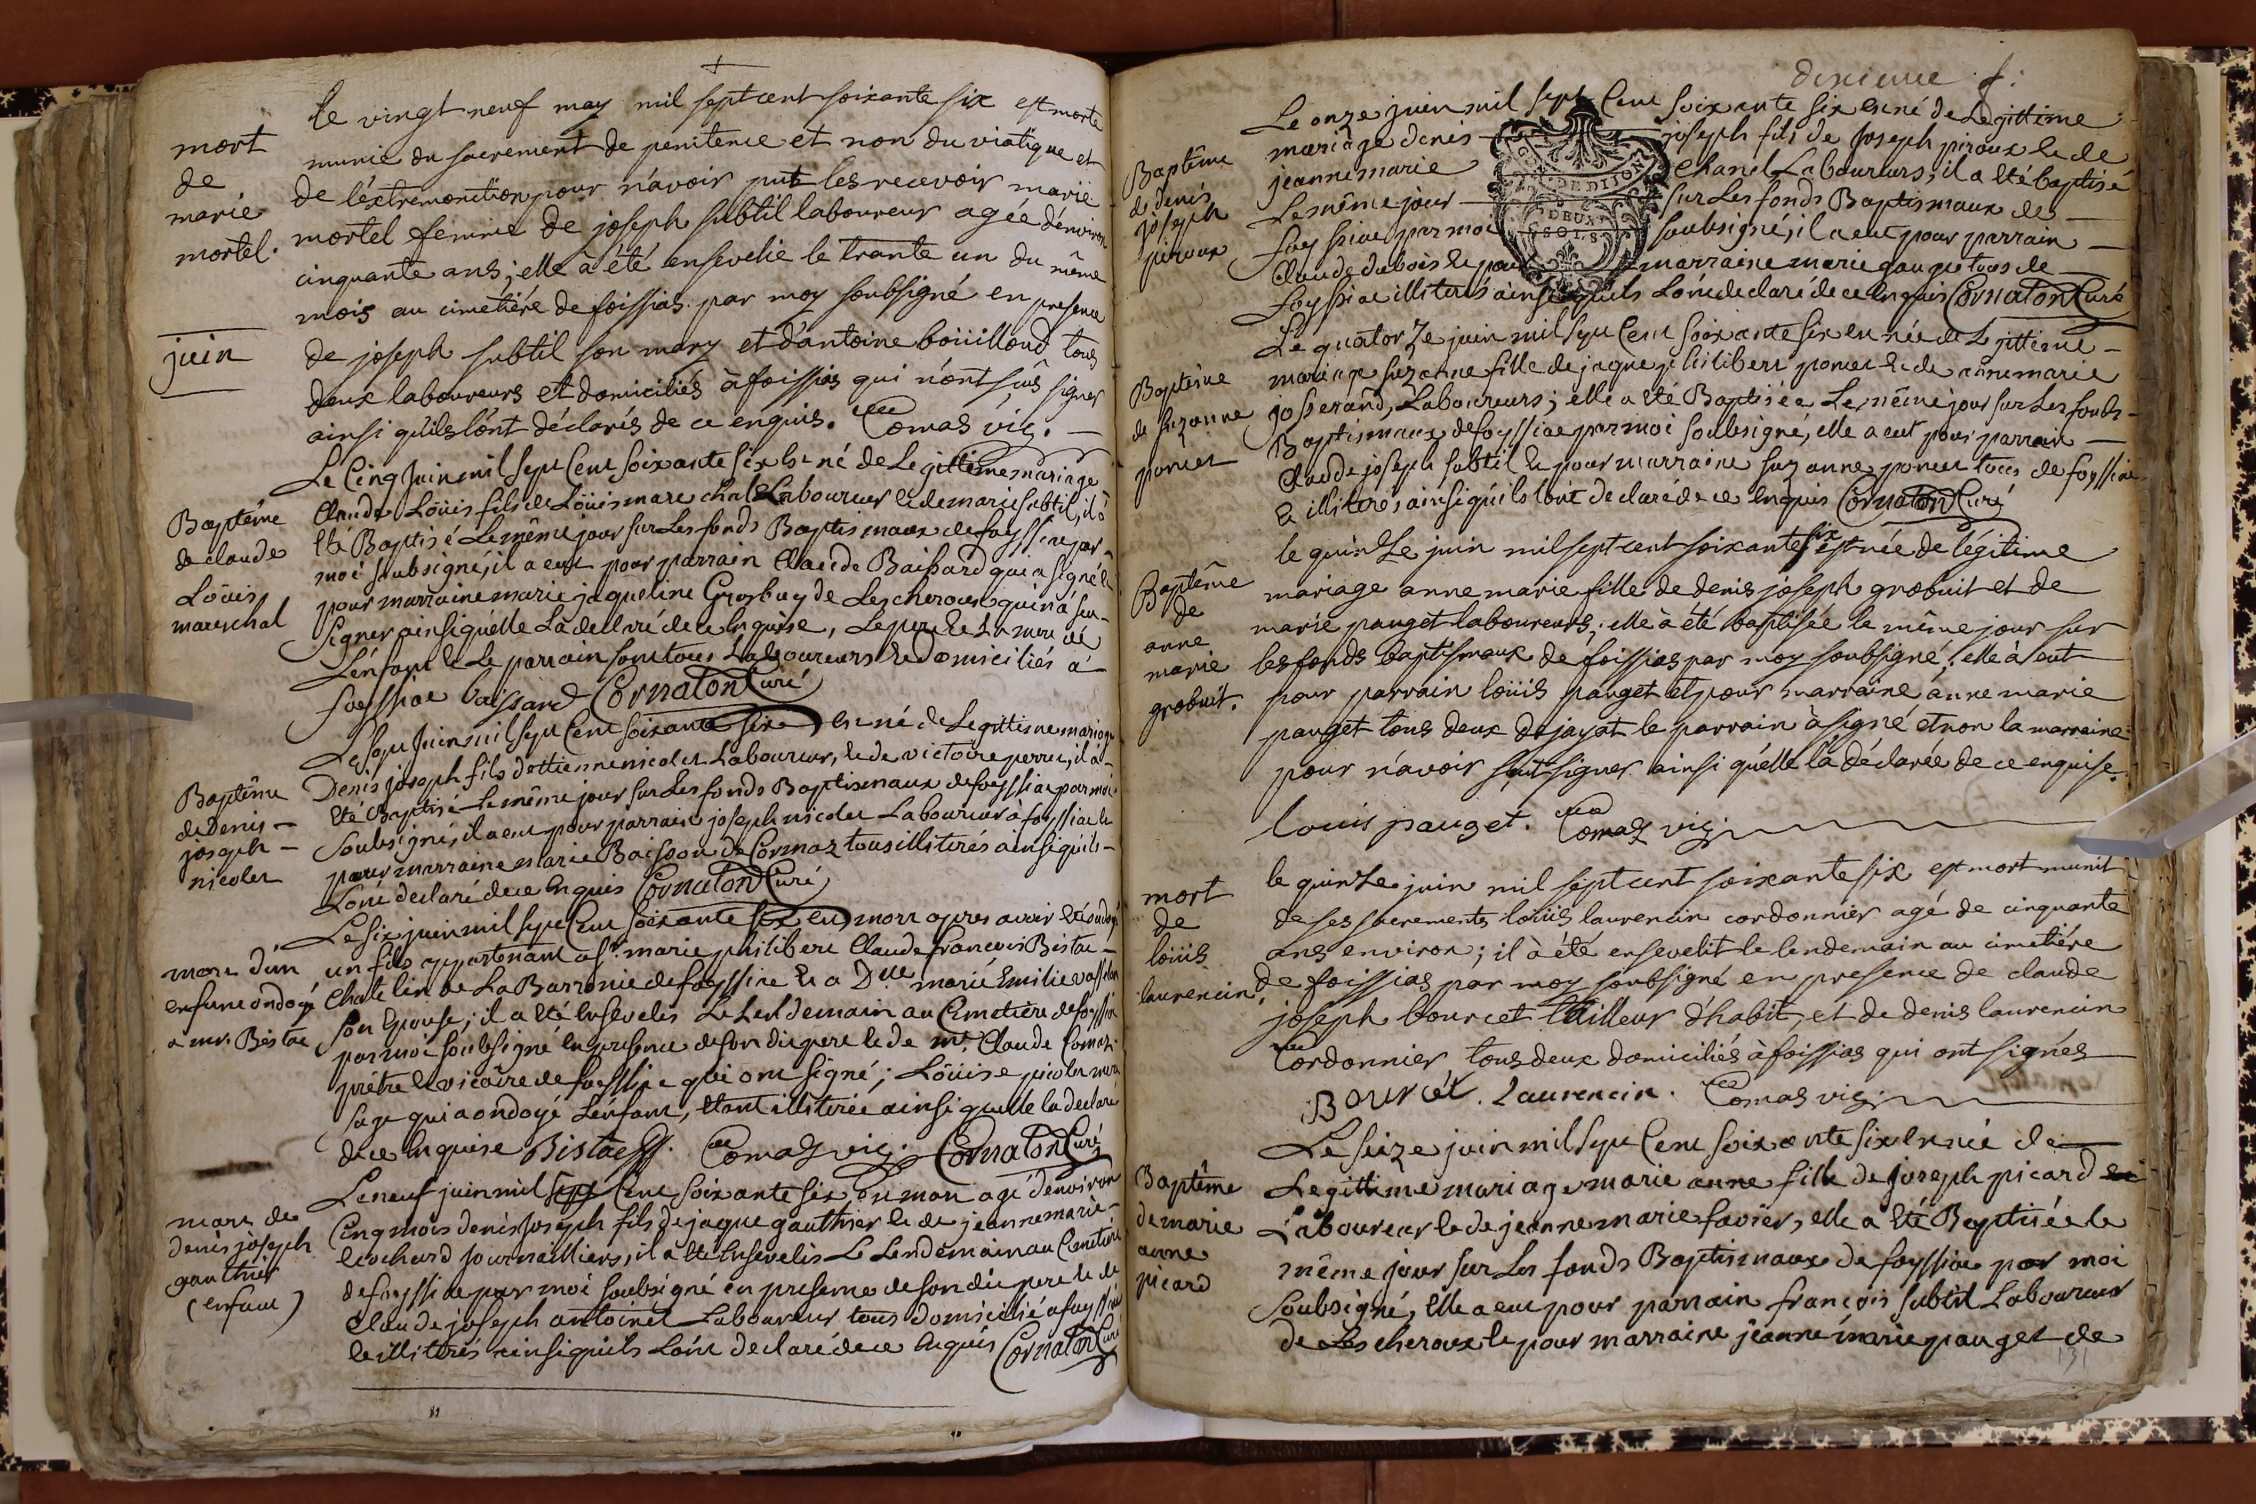 mort
de
marie
mortel.
le vingt neuf may mil sept cent soixante six est morte
munie du sacrement de penitence et non du viatique et
de l'extremonction pour n'avoir put les recevoir marie
mortel femme de joseph subtil laboureur agée d'environ
cinquante ans; elle à été ensevelie le trante un du même
mois au cimetiére de foissias par moy soubsigné en presence
juin
de joseph subtil son mary et d'antoine boüilloud tous
deux laboureurs et domiciliés à foissias qui n'ont sus signer
ainsi qu'ils l'ont déclarés de ce enquis. Comas vic.
Baptême
de claude
Loüis
mareschal
Le Cinq Juin mil sept Cent soixante six est né de Legittime mariage
Claude Loüis fils de Loüis marechal Laboureur et de marie subtil, il à
été Baptisé Le même jour sur Les fonds Baptismaux de foyssiae par
moi soubsigné, il a eut pour parrain Claude Baissard qui a signé et
pour marraine marie jaqueline Grosbuy de Lescheroux qui n'a seu
signer ainsi qu'elle La declaré de ce Enquise, Le pere et La mere de
L'enfant et Le parrain sont tous Laboureurs et domiciliés à
foyssiae baissard Cornaton Curé
Baptême
de denis
joseph
nicolet
Le sept Juin mil sept Cent soixante six est né de Legittime mariage
Denis joseph fils d'ettienne nicolet Laboureur, et de victoire perret, il à
été Baptisé Le même jour sur Les fonds Baptismaux de foyssiae par moi
soubsigné, il a eut pour parrain joseph nicolet Laboureur à foyssiae et
pour marraine marie Baisson de Cormoz tous illiterés ainsi qu'ils
L'ont declaré de ce Enquis Cornaton Curé
mort d'un
enfant ondoyé
a mr. Bistac
Le six juin mil sept Cent soixante six est mort apres avoir été ondoyé
un fils appartenant à sr. marie philibert Claude francois Bistac
Chatelin de La Barronie de foyssiae et a Dlle marie Emilie
son Epouse; il a été Ensevelis Le Lendemain au Cimetiere de foyssiae
par moi soubsigné en presence de son dit pere et de mr. Claude Comaz
prêtre et vicaire de foyssiae qui ont signé; Loüise nicolet mere
sage qui a ondoyé L'enfant, etant illiterée ainsi qu'elle la declaré
de ce Enquise Bistac Comaz vic. Cornaton Curé
mort de
denis joseph
gauthier
(enfant)
Le neuf juin mil sept Cent soixante six est mort agé d'environ
Cinq mois denis Joseph fils de jaque gauthier et de jeanne marie
cochard journailliers, il a été Ensevelis Le Lendemain au Cimetiere
de foyssiae par moi soubsigné en presence de son dit pere et de
Claude joseph antoinet Laboureur tous domicilié a foyssiae
et illiterés ainsi qu'ils L'ont declaré de ce Enquis Cornaton Curé
dixieme f.
Baptême
de denis
joseph
piroux
Le onze juin mil sept Cent soixante six est né de Legittime
mariage denis joseph fils de Joseph piroux et de
jeanne marie Chanel Laboureurs, il a été baptisé
Le même jour sur Les fonds Baptismaux de
foyssiae par moi soubsigné, il a eut pour parrain
Claude dubois et pour marraine marie gauget tous de
foyssiae illiterés ainsi qu'ils L'ont declaré de ce Enquis Cornaton Curé
DE DIJON
DEUX
SOLS
Baptême
de suzanne
poncet
Le quatorze juin mil sept Cent soixante six est née de Legittime
mariage suzanne fille de jaque philibert poncet et de anne marie
josserand, Laboureurs; elle a été Baptisée Le même jour sur Les fonds
Baptismaux de foyssiae par moi soubsigné, elle a eut pour parrain
Claude joseph subtil et pour marraine suzanne poncet tous de foyssiae
et illiterés ainsi qu'ils L'ont declaré de ce Enquis Cornaton Curé
Baptême
de
anne
marie
grobuit.
le quinze juin mil sept cent soixante six est née de légitime
mariage anne marie fille de denis joseph grobuit et de
marie pauget laboureurs; elle à été baptisée le même jour sur
les fonds baptismaux de foissias par moy soubsigné; elle à eut
pour parrain loüis pauget et pour marraine anne marie
pauget tous deux de jayat le parrain à signé et non la marraine
pour n'avoir sçut signer ainsi qu'elle l'a déclarée de ce enquise.
louis pauget. Comaz vic.
mort
de
loüis
laurencin.
le quinze juin mil sept cent soixante six est mort munit
de ses sacrements loüis laurencin cordonnier agé de cinquante
ans environ; il à été ensevelit le lendemain au cimetiére
de foissias par moy soubsigné en presence de claude
joseph bourcet tailleur d'habit, et de denis laurencin
cordonnier tous deux domiciliés à foissias qui ont signés
Bourcet. Laurencin. Comas vic.
Baptême
de marie
anne
picard
Le seize juin mil sept Cent soixante six est née de
Legittime mariage marie anne fille de joseph picard
Laboureur et de jeanne marie favier, elle a été Baptisée le
même jour sur Les fonds Baptismaux de foyssiae par moi
soubsigné, elle a eut pour parrain françois subtil Laboureur
de Lescheroux et pour marraine jeanne marie pauget de
131